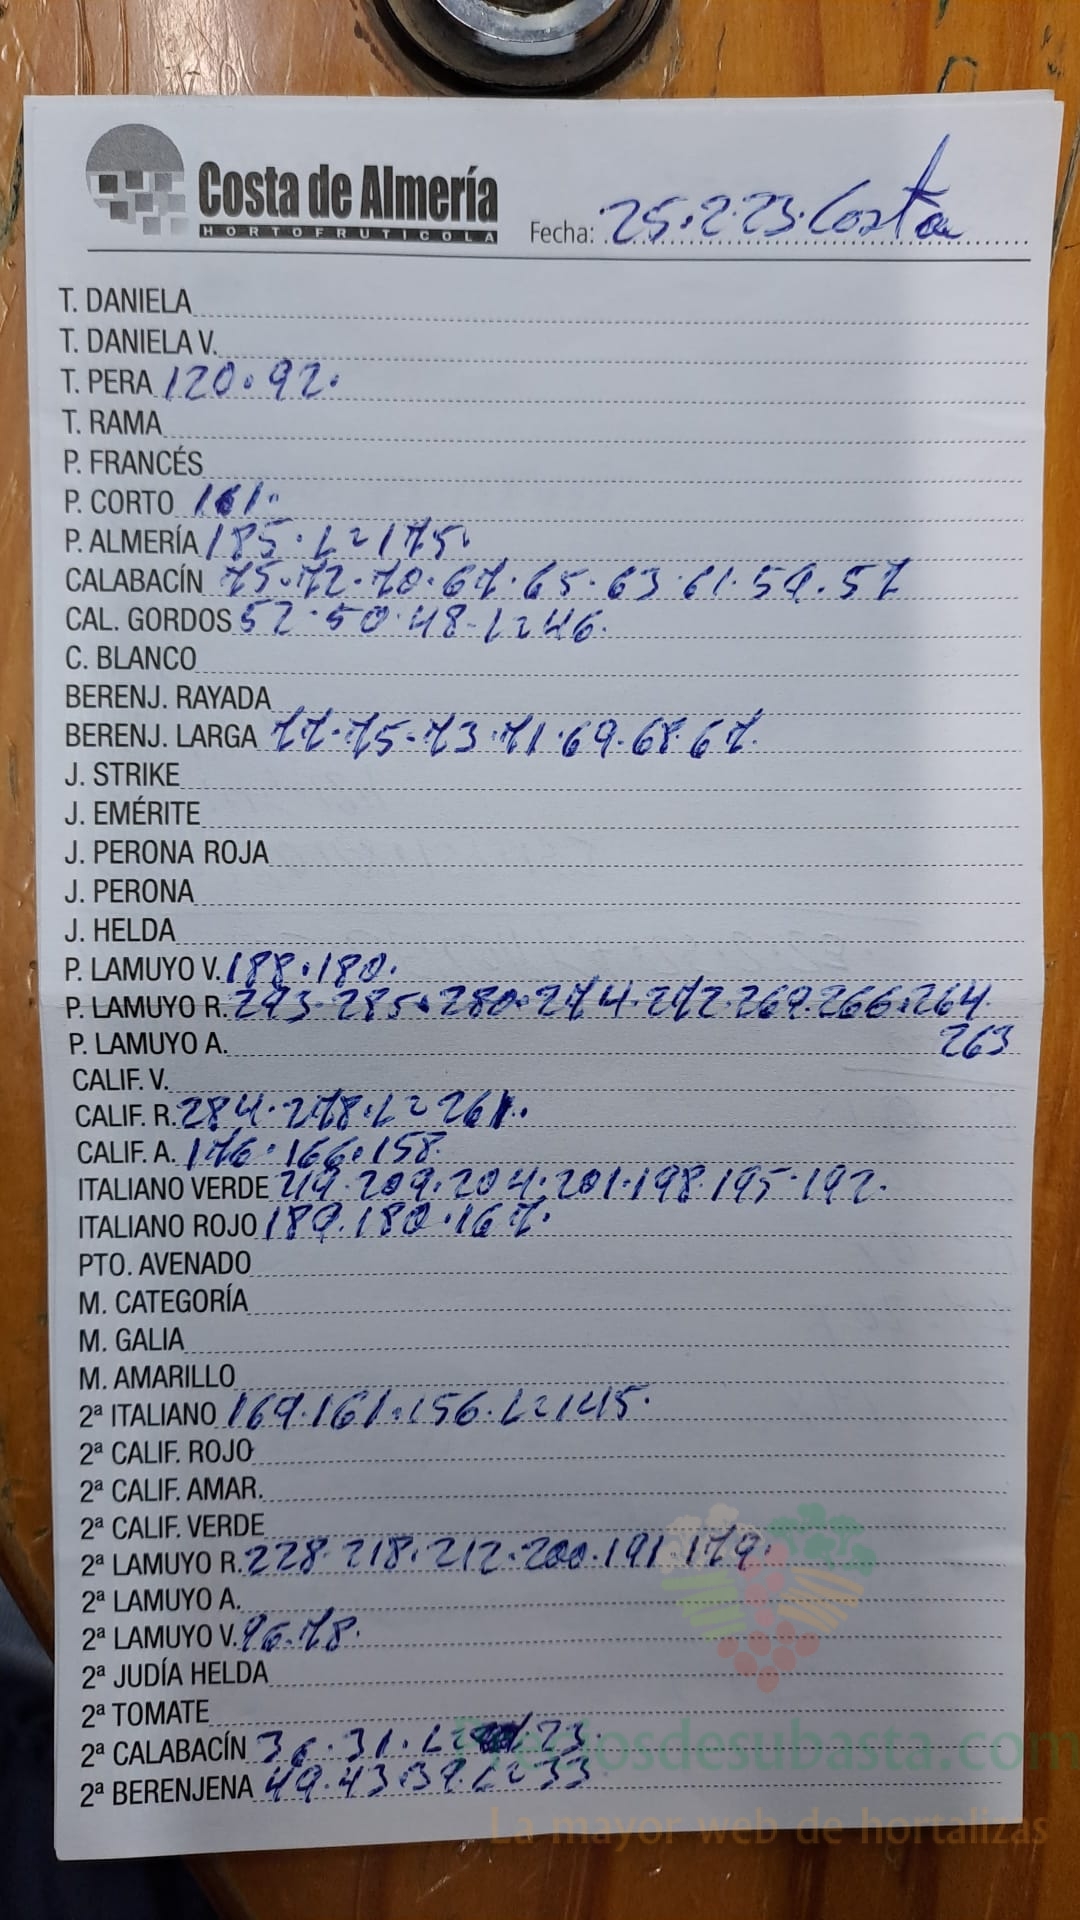 Costa de Almería
HORTOFRUTICOLA
Fecha: 25.2.23. Costa
T. DANIELA
T. DANIELA V.
T. PERA 120.92.
T. RAMA
P. FRANCÉS
P. CORTO 161.
P. ALMERÍA 185.L2175.
CALABACÍN 75.72.70.67.65.63.61.59.57
CAL. GORDOS 52.50.48.L246.
C. BLANCO
BERENJ. RAYADA
BERENJ. LARGA 77.75.73.71.69.68.67.
J. STRIKE
J. EMÉRITE
J. PERONA ROJA
J. PERONA
J. HELDA
P. LAMUYO V. 188.180.
P. LAMUYO R. 293.285.280.274.272.269.266.264
P. LAMUYO A. 263
CALIF. V.
CALIF. R. 284.278.L2261.
CALIF. A. 176.166.158.
ITALIANO VERDE 219.209.204.201.198.195.192.
ITALIANO ROJO 189.180.167.
PTO. AVENADO
M. CATEGORÍA
M. GALIA
M. AMARILLO
2ª ITALIANO 169.161.156.L2145.
2ª CALIF. ROJO
2ª CALIF. AMAR.
2ª CALIF. VERDE
2ª LAMUYO R. 228.218.212.200.191.179.
2ª LAMUYO A.
2ª LAMUYO V. 96.78.
2ª JUDÍA HELDA
2ª TOMATE
2ª CALABACÍN 36.31.L2 23.
2ª BERENJENA 49.43.39.L233
Preciosdesubasta.com
La mayor web de hortalizas